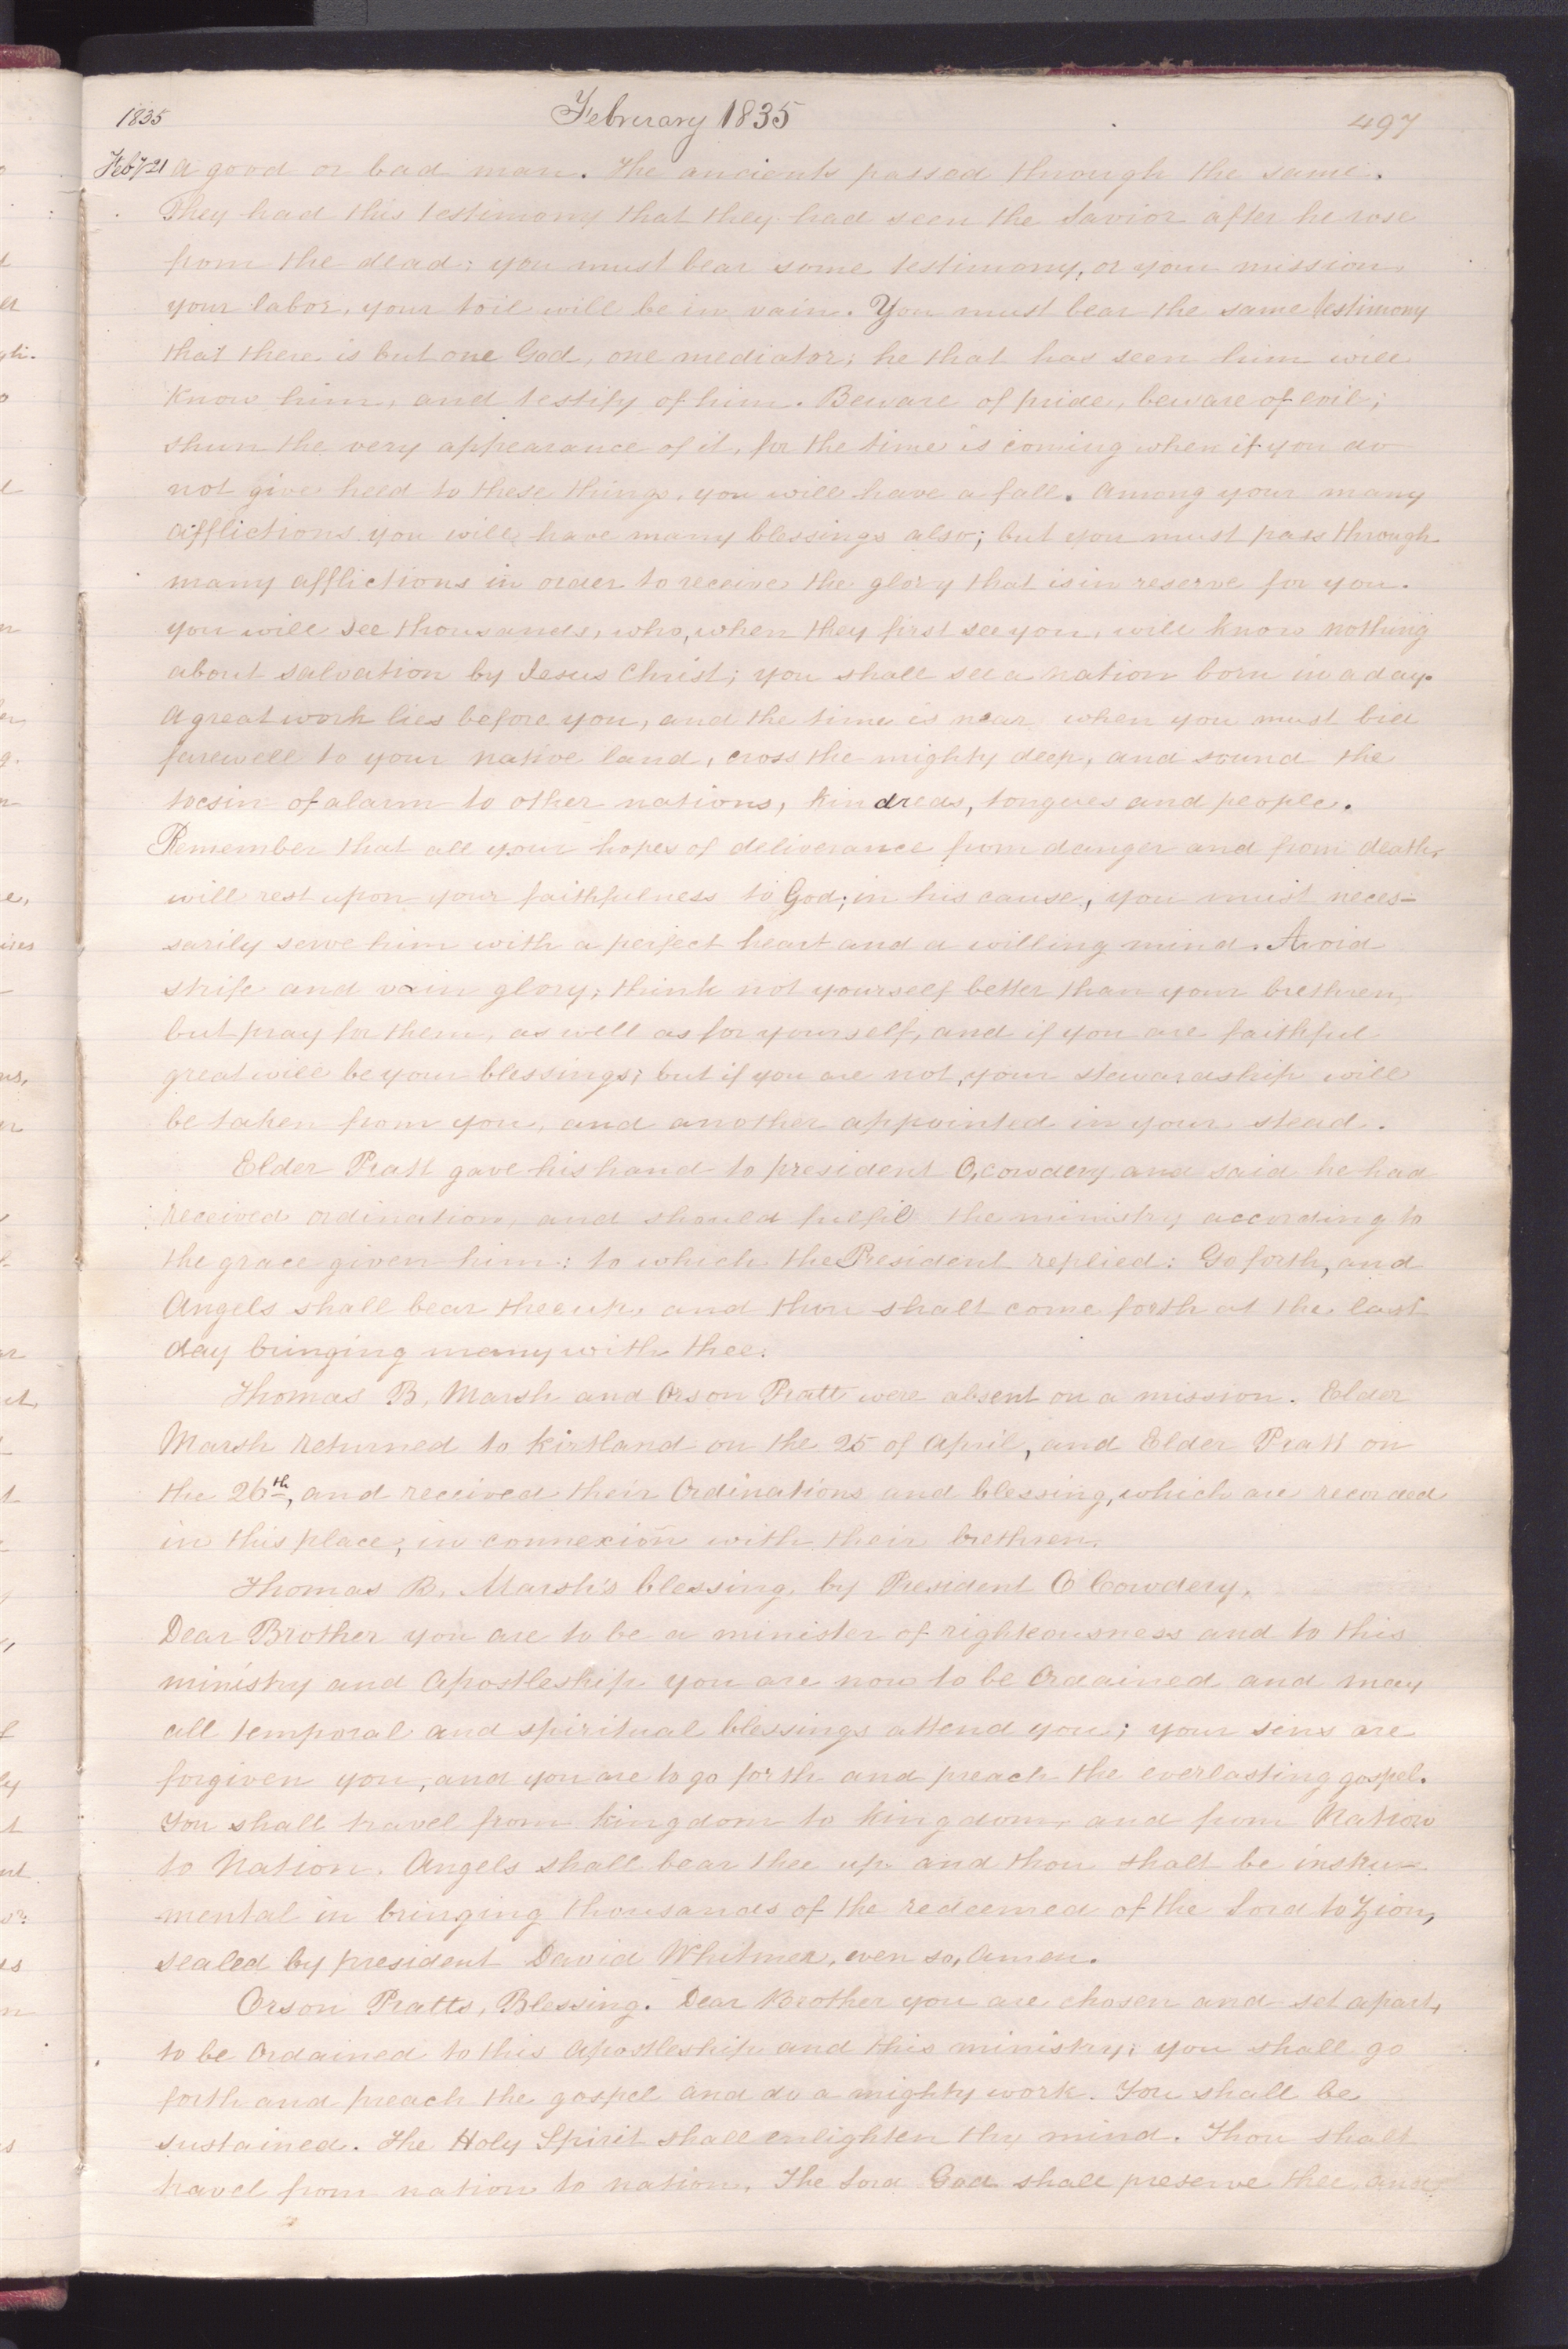 1835 February 1835 497
Feby 21 A good or bad man. The ancients passed through the same.
They had this testimony that they had seen the Savior after he rose
from the dead; you must bear some testimony, or your mission,
your labor, your toil will be in vain. You must bear the same testimony
that there is but one God, one mediator; he that has seen him will
Know him, and testify of him. Beware of pride, beware of evil;
shun the very appearance of it, for the time is coming when if you do
not give heed to these things, you will have a fall. Among your many
afflictions you will have many blessings also; but you must pass through
many afflictions in order to receive the glory that is in reserve for you.
you will see thousands, who, when they first see you, will know nothing
about salvation by Jesus Christ; you shall see a nation born in a day.
A great work lies before you, and the time is near when you must bid
farewell to your native land, cross the mighty deep, and sound the
tocsin of alarm to other nations, kindreds, tongues and people.
Remember that all your hopes of deliverance from danger and from death,
will rest upon your faithfulness to God; in his cause, you must neces-
sarily serve him with a perfect heart and a willing mind. Avoid
strife and vain glory; think not yourself better than your brethren,
but pray for them, as well as for yourself, and if you are faithful
great will be your blessings; but if you are not, your stewardship will
be taken from you, and another appointed in your stead.
Elder Pratt gave his hand to president O, cowdery and said he had
received ordination, and should fulfil the ministry according to
the grace given him: to which the President replied: Go forth, and
Angels shall bear thee up, and thou shalt come forth at the last
day bringing many with thee.
Thomas B, Marsh and Orson Pratt were absent on a mission. Elder
Marsh returned to Kirtland on the 25 of April, and Elder Pratt on
the 26th, and received their Ordinations and blessing, which are recorded
in this place, in connexion with their brethren.
Thomas B. Marsh's blessing, by President O Cowdery,
Dear Brother you are to be a minister of righteousness and to this
ministry and Apostleship you are now to be Ordained and may
all temporal and spiritual blessings attend you; your sins are
forgiven you, and you are to go forth and preach the everlasting gospel.
You shall travel from kingdom to kingdom, and from Nation
to Nation. Angels shall bear thee up and thou shalt be instru-
-mental in bringing thousands of the redeemed of the Lord to Zion,
sealed by president David Whitmer, even so, Amen.
Orson Pratts, Blessing. Dear Brother you are chosen and set apart,
to be Ordained to this Apostleship and this ministry; you shall go
forth and preach the gospel and do a mighty work. You shall be
sustained. The Holy Spirit shall enlighten thy mind. Thou shalt
travel from nation to nation, The Lord God shall preserve thee and